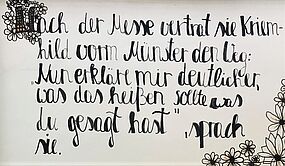 Nach der Messe vertrat sie Kriem-
hild vorm Münster den Weg:
"Nun erkläre mir deutlicher,
was das heißen sollte was
du gesagt hast", sprach
sie.